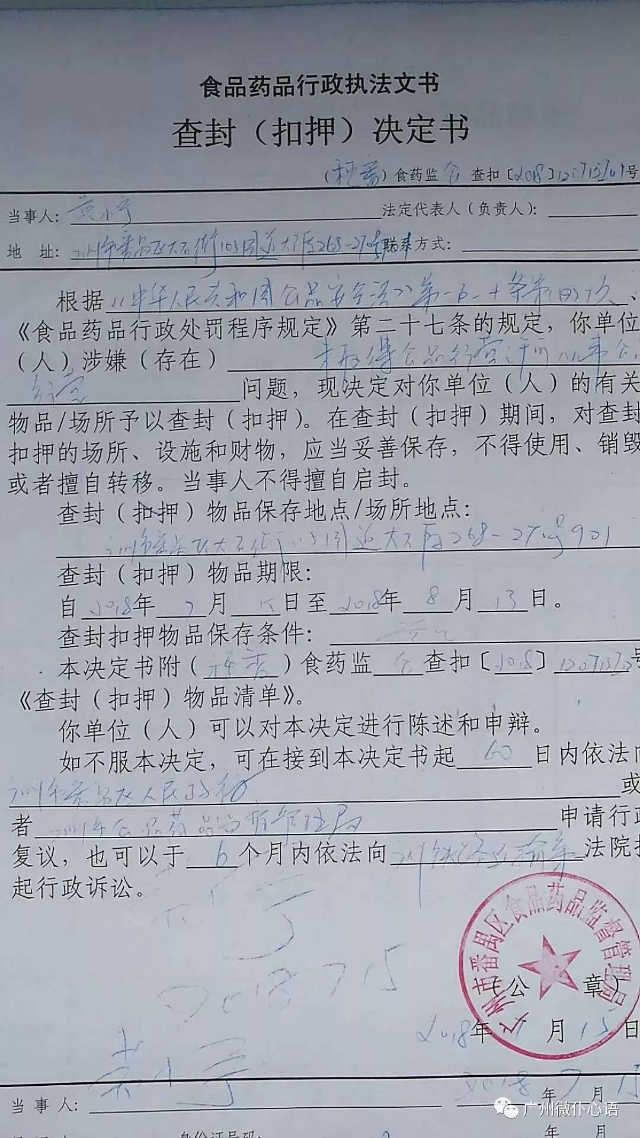 食品药品行政执法文书
查封（扣押）决定书
食药监 食 查扣〔2018〕 号
当事人： 法定代表人（负责人）：
地 址： 联系方式：
根据《中华人民共和国食品安全法》第一百一十条
《食品药品行政处罚程序规定》第二十七条的规定，你单位
（人）涉嫌（存在）未取得食品经营许可从事食品
经营 问题，现决定对你单位（人）的有关
物品/场所予以查封（扣押）。在查封（扣押）期间，对查封
扣押的场所、设施和财物，应当妥善保存，不得使用、销毁
或者擅自转移。当事人不得擅自启封。
查封（扣押）物品保存地点/场所地点：
268-270号901
查封（扣押）物品期限：
自2018年7月15日至2018年8月13日。
查封扣押物品保存条件：
本决定书附（ ）食药监 食 查扣〔2018〕 号
《查封（扣押）物品清单》。
你单位（人）可以对本决定进行陈述和申辩。
如不服本决定，可在接到本决定书起 60 日内依法向
广州市番禺区人民政府 或
者 广州市食品药品监督管理局 申请行政
复议，也可以于 6 个月内依法向 广州铁路运输 法院提
起行政诉讼。
2018 7 15
广州市番禺区食品药品监督管理局
（公 章）
2018年7月15日
2018年7月15
当事人：
年 月
身份证号码：
广州微仆心语